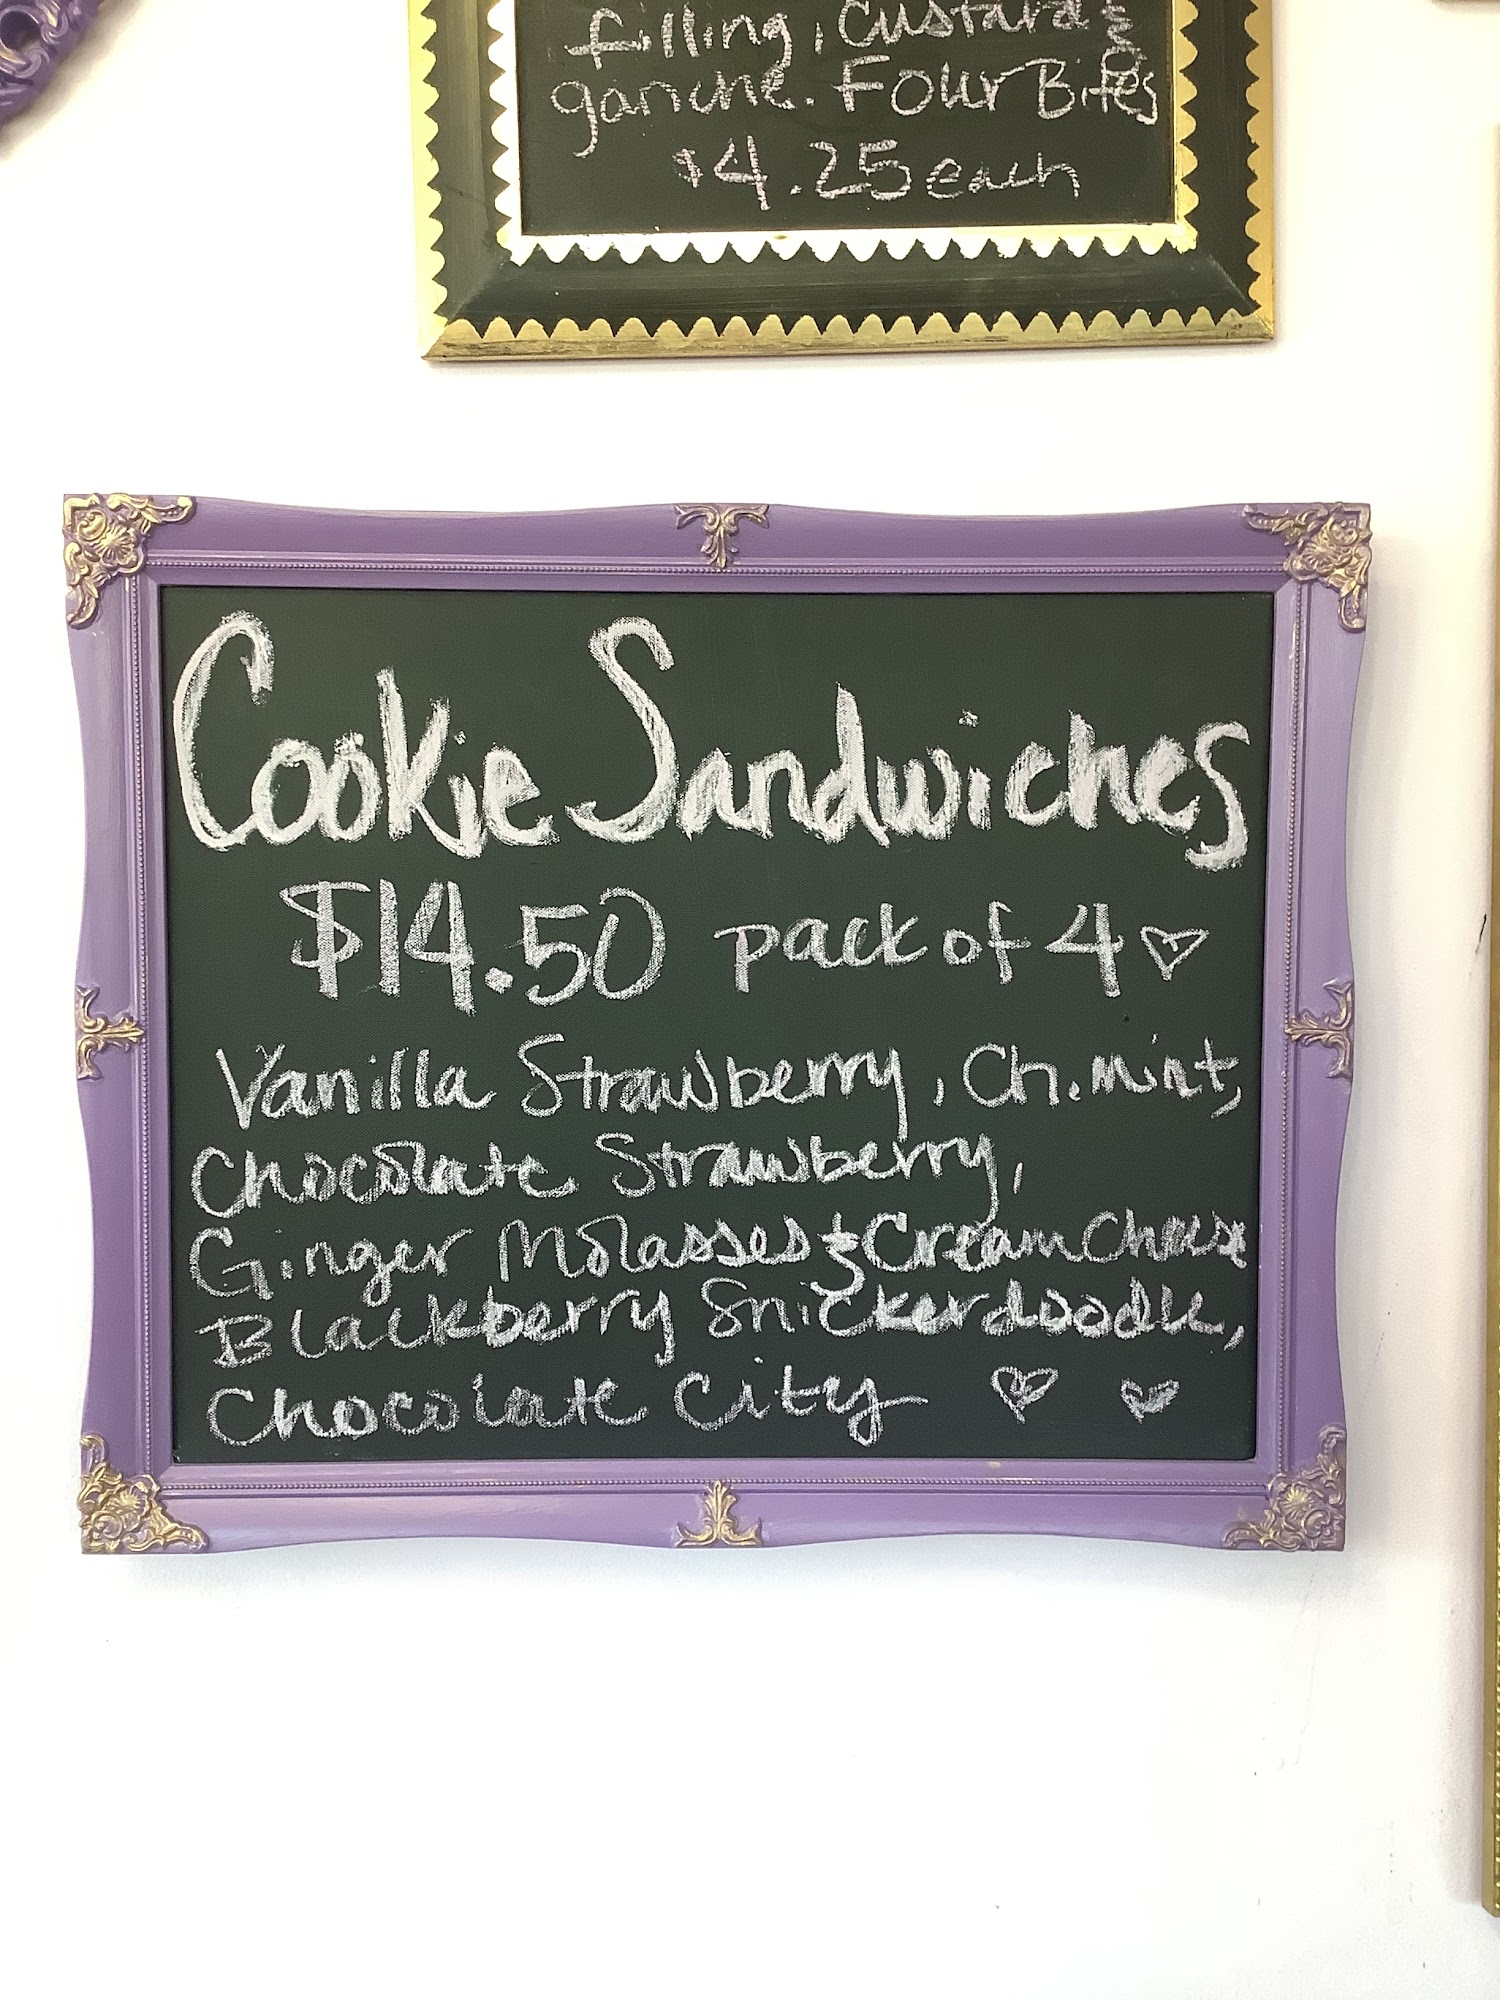 filling, custard &
ganache. Four Bites
$4.25 each
Cookie Sandwiches
$14.50 pack of 4 ♡
Vanilla Strawberry, Ch. mint,
Chocolate Strawberry,
Ginger Molasses & Cream Cheese
Blackberry Snickerdoodle,
Chocolate City ♡ ♡